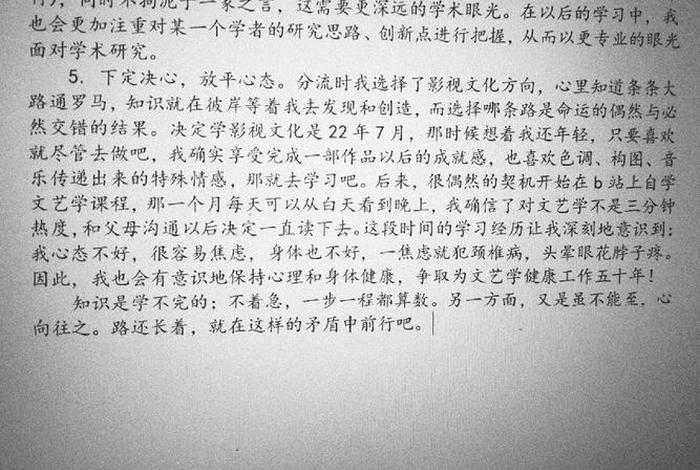 同时不拘泥于一家之言，这需要更深远的学术眼光。在以后的学习中，我
也会更加注重对某一个学者的研究思路、创新点进行把握，从而以更专业的眼光
面对学术研究。
5. 下定决心，放平心态。分流时我选择了影视文化方向，心里知道条条大
路通罗马，知识就在彼岸等着我去发现和创造，而选择哪条路是命运的偶然与必
然交错的结果。决定学影视文化是 22 年 7 月，那时候想着我还年轻，只要喜欢
就尽管去做吧，我确实享受完成一部作品以后的成就感，也喜欢色调、构图、音
乐传递出来的特殊情感，那就去学习吧。后来，很偶然的契机开始在 b 站上自学
文艺学课程，那一个月每天可以从白天看到晚上，我确信了对文艺学不是三分钟
热度，和父母沟通以后决定一直读下去。这段时间的学习经历让我深刻地意识到：
我心态不好，很容易焦虑，身体也不好，一焦虑就犯颈椎病，头晕眼花脖子疼。
因此，我也会有意识地保持心理和身体健康，争取为文艺学健康工作五十年！
知识是学不完的；不着急，一步一程都算数。另一方面，又是虽不能至，心
向往之。路还长着，就在这样的矛盾中前行吧。